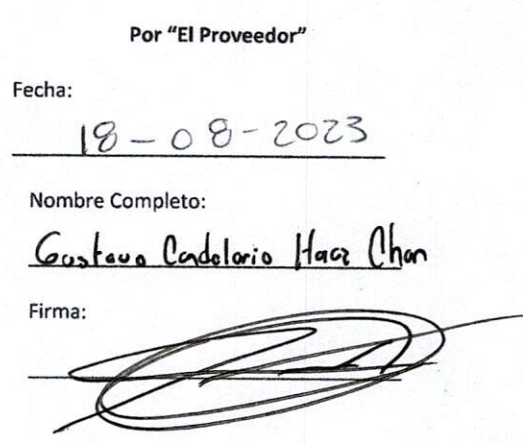 Por “El Proveedor”
Fecha:
18-08-2023
Nombre Completo:
Gustavo Candelario Haaz Chan
Firma: